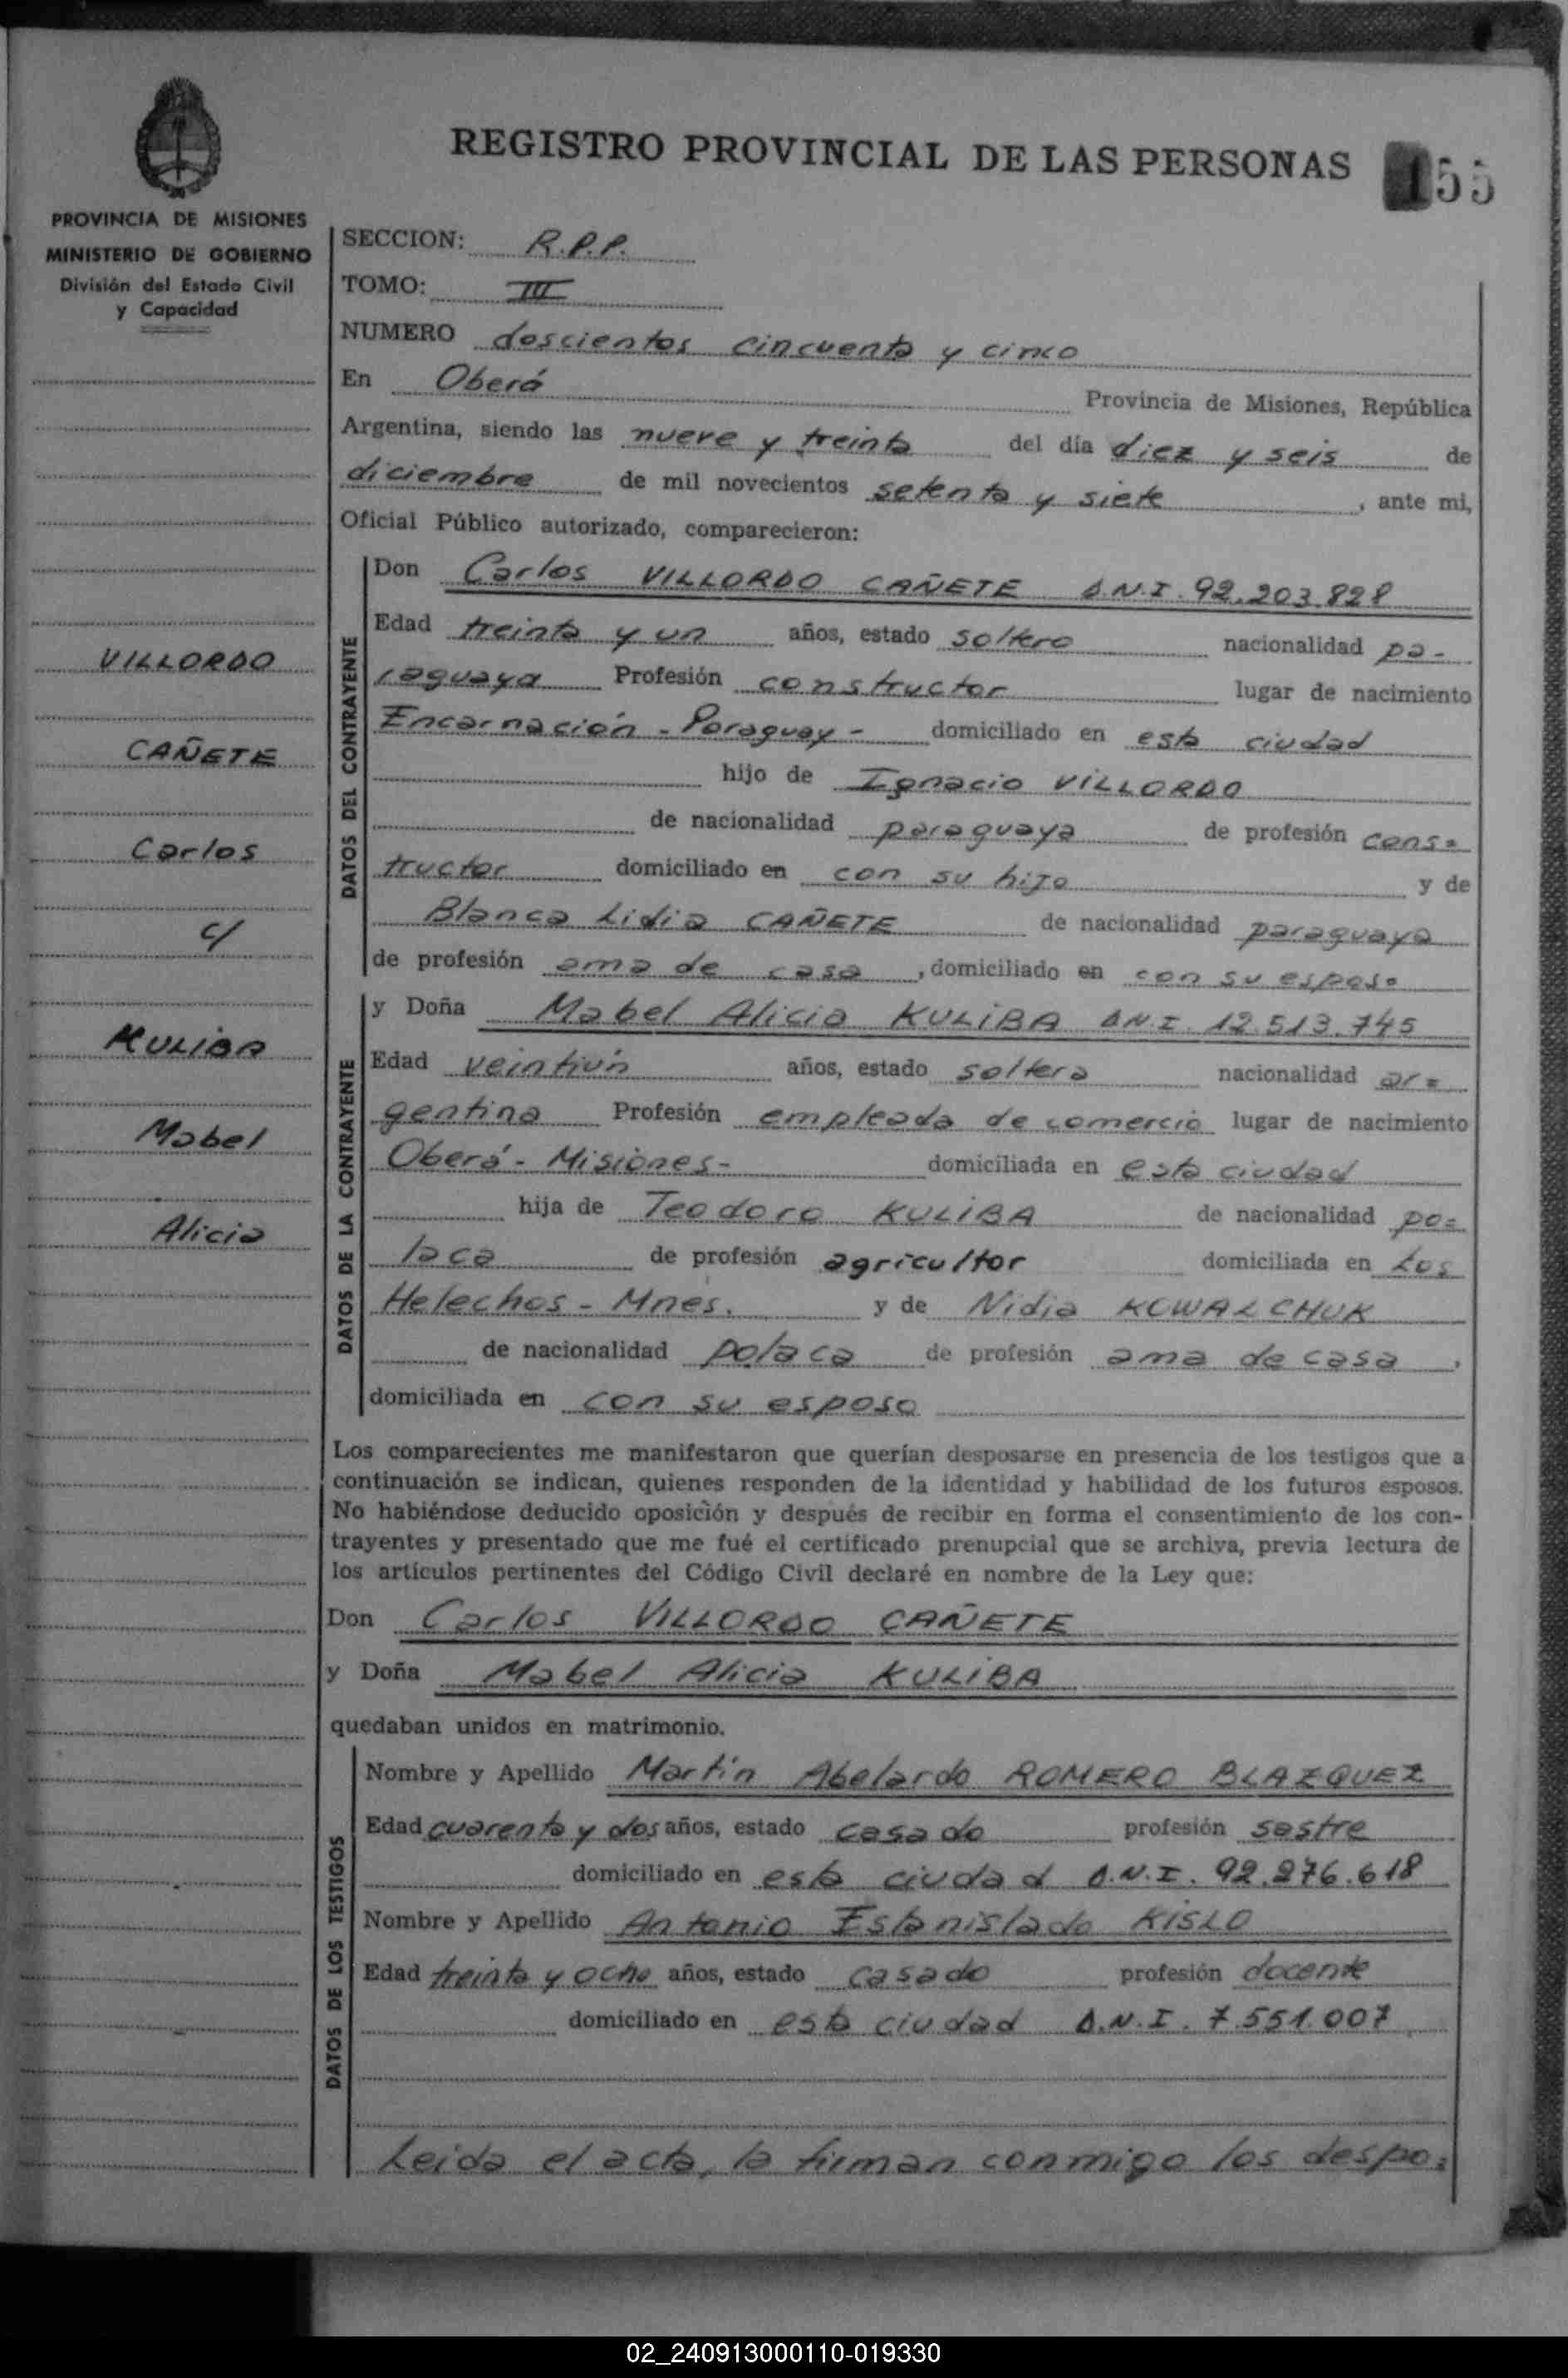 REGISTRO PROVINCIAL DE LAS PERSONAS 155
PROVINCIA DE MISIONES
MINISTERIO DE GOBIERNO
División del Estado Civil
y Capacidad
VILLORDO
CAÑETE
Carlos
c/
KULIBA
Mabel
Alicia
SECCION: R.P.P.
TOMO: III
NUMERO doscientos cincuenta y cinco
En Oberá Provincia de Misiones, República
Argentina, siendo las nueve y treinta del día diez y seis de
diciembre de mil novecientos setenta y siete, ante mi,
Oficial Público autorizado, comparecieron:
DATOS DEL CONTRAYENTE
Don Carlos VILLORDO CAÑETE D.N.I. 92.203.828
Edad treinta y un años, estado soltero nacionalidad pa-
raguaya Profesión constructor lugar de nacimiento
Encarnación - Paraguay - domiciliado en esta ciudad
hijo de Ignacio VILLORDO
de nacionalidad paraguaya de profesión cons=
tructor domiciliado en con su hijo y de
Blanca Lidia CAÑETE de nacionalidad paraguaya
de profesión ama de casa, domiciliado en con su esposo
DATOS DE LA CONTRAYENTE
y Doña Mabel Alicia KULIBA D.N.I. 12.513.745
Edad veintiún años, estado soltera nacionalidad ar=
gentina Profesión empleada de comercio lugar de nacimiento
Oberá - Misiones - domiciliada en esta ciudad
hija de Teodoro KULIBA de nacionalidad po=
laca de profesión agricultor domiciliada en Los
Helechos - Mnes. y de Nidia KOWALCHUK
de nacionalidad polaca de profesión ama de casa,
domiciliada en con su esposo
Los comparecientes me manifestaron que querían desposarse en presencia de los testigos que a
continuación se indican, quienes responden de la identidad y habilidad de los futuros esposos.
No habiéndose deducido oposición y después de recibir en forma el consentimiento de los con-
trayentes y presentado que me fué el certificado prenupcial que se archiva, previa lectura de
los artículos pertinentes del Código Civil declaré en nombre de la Ley que:
Don Carlos VILLORDO CAÑETE
y Doña Mabel Alicia KULIBA
quedaban unidos en matrimonio.
DATOS DE LOS TESTIGOS
Nombre y Apellido Martín Abelardo ROMERO BLAZQUEZ
Edad cuarenta y dos años, estado casado profesión sastre
domiciliado en esta ciudad D.N.I. 92.276.618
Nombre y Apellido Antonio Estanislado KISLO
Edad treinta y ocho años, estado casado profesión docente
domiciliado en esta ciudad D.N.I. 7.551.007
Leida el acta, la firman conmigo los despo=
02_240913000110-019330